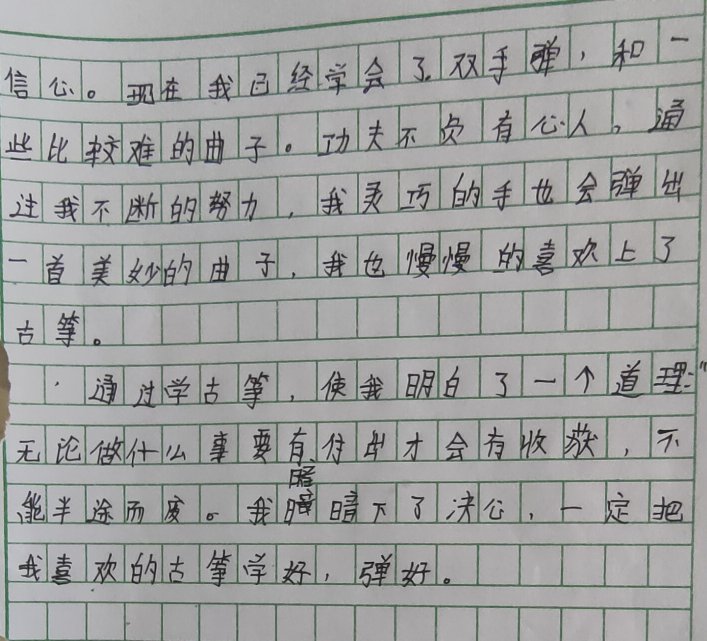 信心。现在我已经学会了双手弹，和一
些比较难的曲子。功夫不负有心人。通
过我不断的努力，我灵巧的手也会弹出
一首美妙的曲子，我也慢慢的喜欢上了
古筝。
通过学古筝，使我明白了一个道理："
无论做什么事要有付出才会有收获，不
能半途而废。我暗暗下了决心，一定把
我喜欢的古筝学好，弹好。